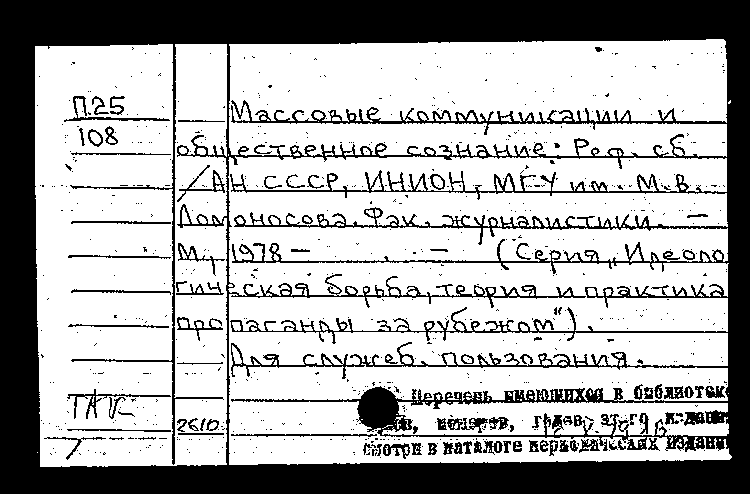 П25
108
Массовые коммуникации и
общественное сознание: Реф. сб.
/АН СССР, ИНИОН, МГУ им. М.В.
Ломоносова. Фак. журналистики. —
М., 1978 — . — (Серия „Идеоло
гическая борьба, теория и практика
пропаганды за рубежом").
Для служеб. пользования.
Перечень имеющихся в библиотеке
2610
номеров, годов
смотри в каталоге периодических издани